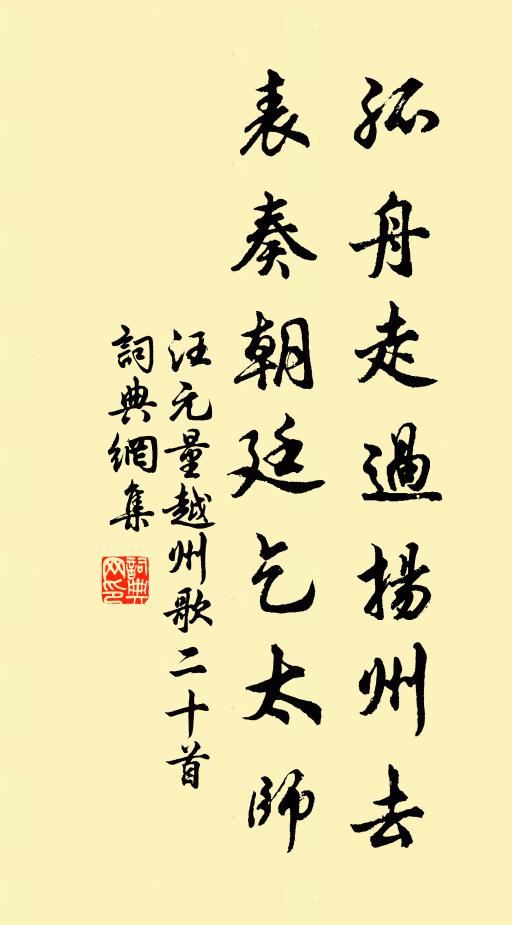 孤舟走過揚州去
表奏朝廷乞太師
汪元量越州歌二十首
詞典網集
詞典网印